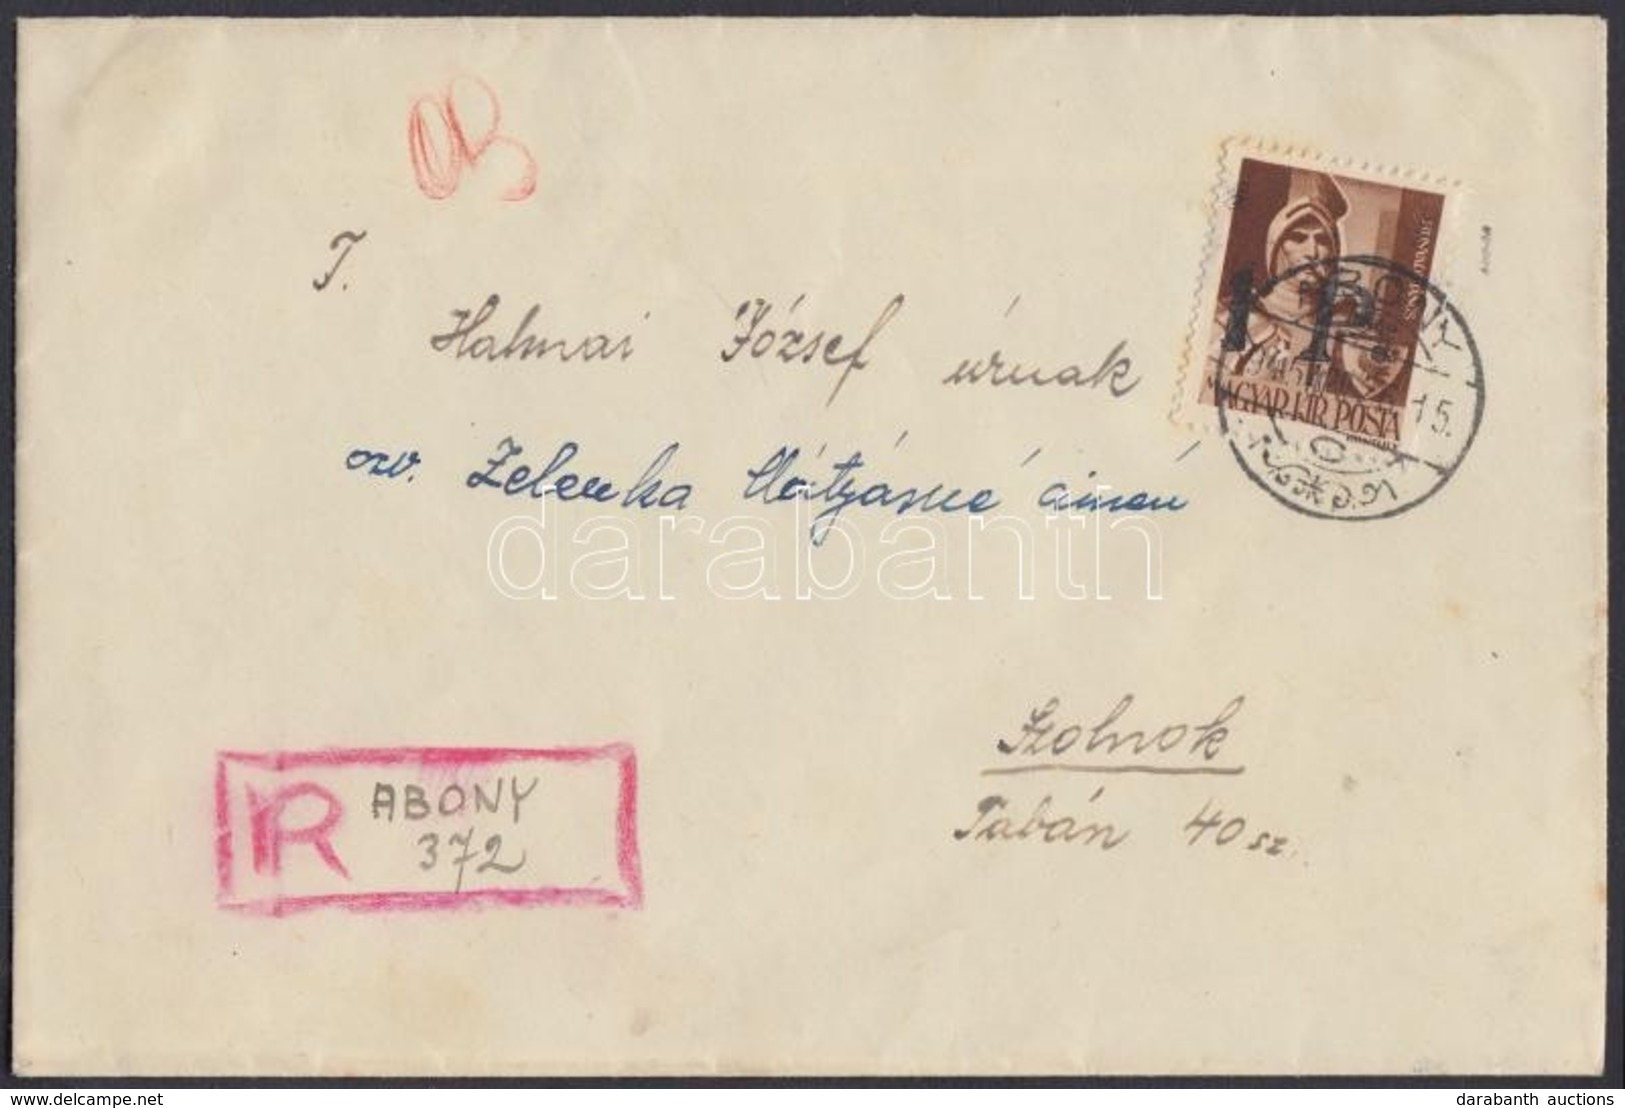 T.
Halmai József úrnak
özv. Zelenka Mátyásné címén
Szolnok
Tabán 40 sz.
R ABONY
372
1 P
MAGYAR KIR. POSTA
ABONY
15.
darabanth
delcampe.net
darabanth auctions